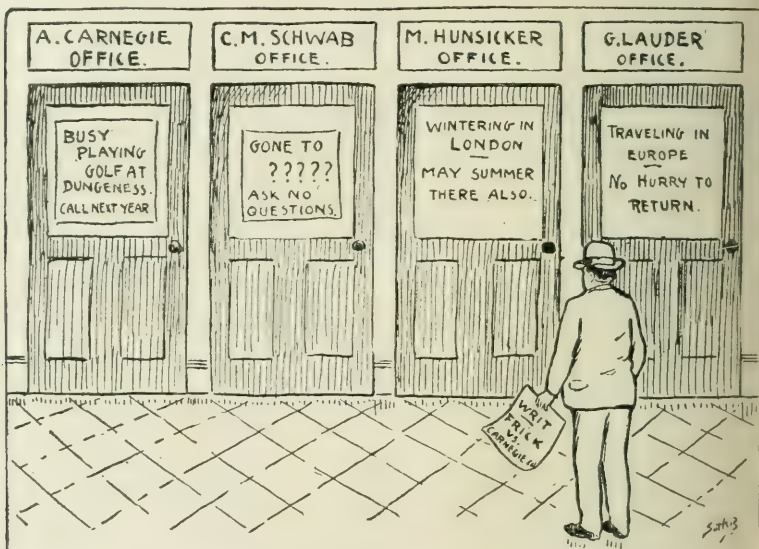 A. CARNEGIE
OFFICE.
C. M. SCHWAB
OFFICE.
M. HUNSICKER
OFFICE.
G. LAUDER
OFFICE.
BUSY
PLAYING
GOLF AT
DUNGENESS.
CALL NEXT YEAR
GONE TO
?????
ASK NO
QUESTIONS.
WINTERING IN
LONDON
MAY SUMMER
THERE ALSO.
TRAVELING IN
EUROPE
NO HURRY TO
RETURN.
WRIT
FRICK
VS.
CARNEGIE CO